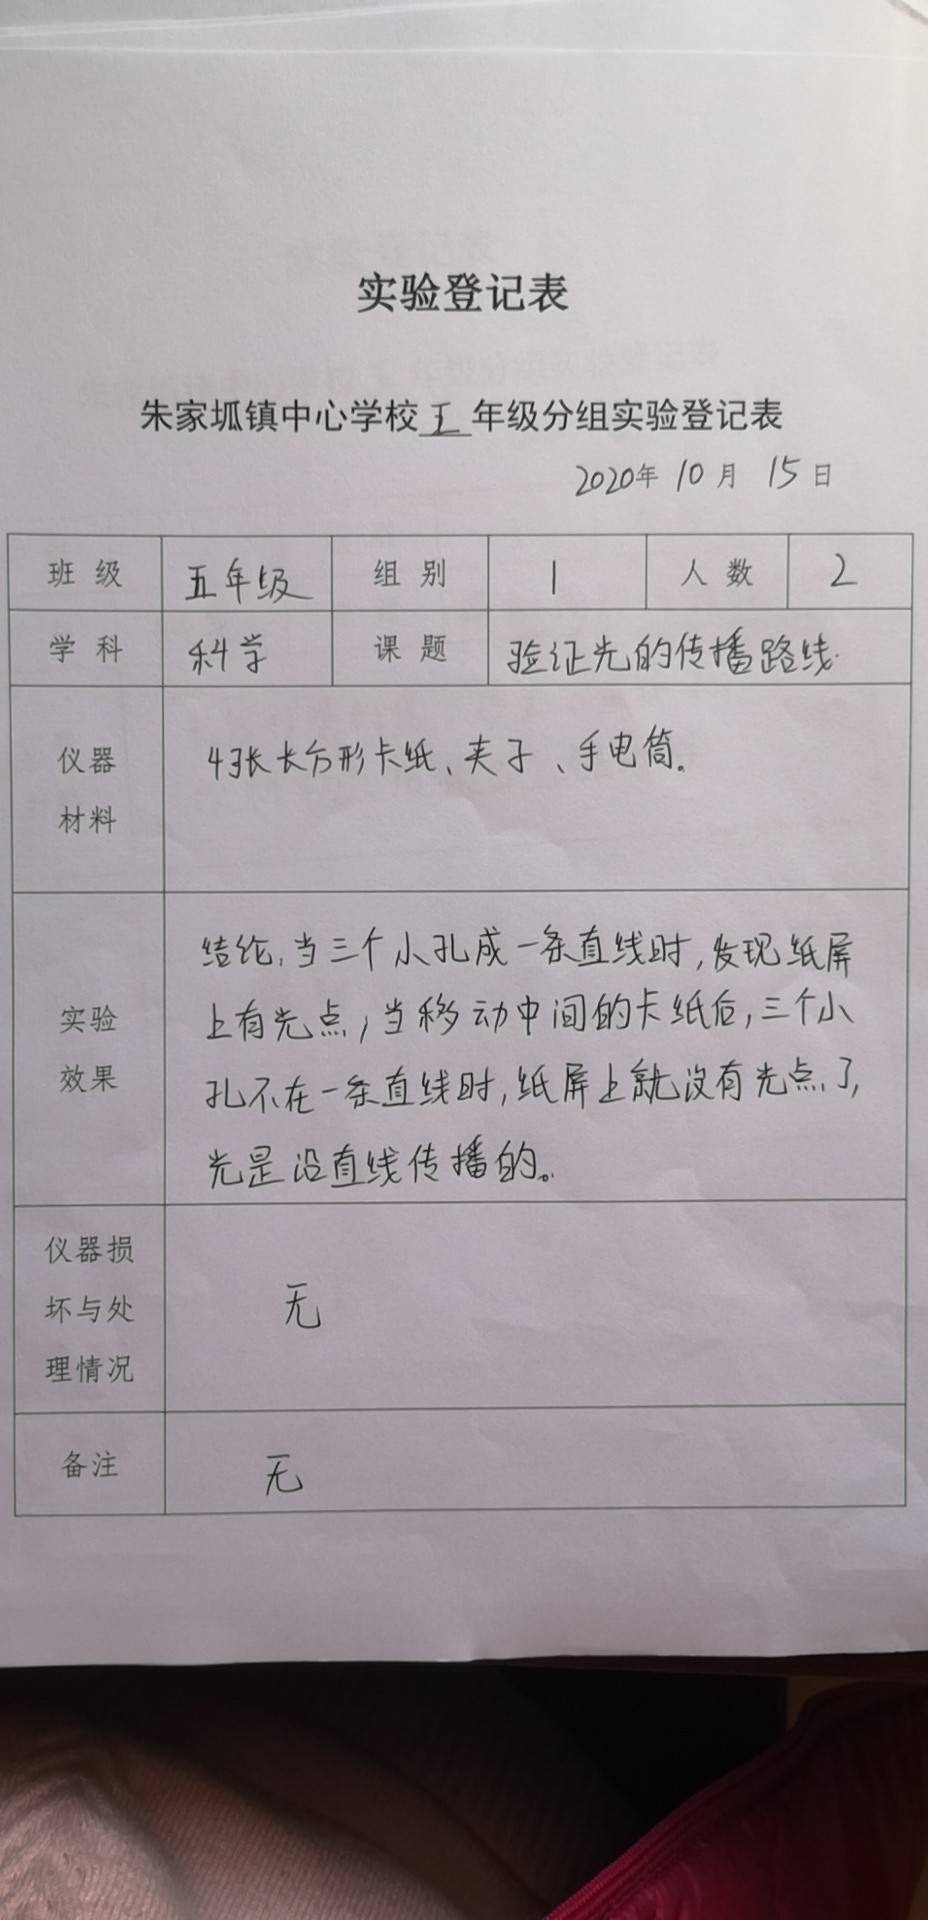 实验登记表
朱家坬镇中心学校五年级分组实验登记表
2020年 10月 15日
班级 五年级 组别 1 人数 2
学科 科学 课题 验证光的传播路线.
仪器
材料
4张长方形卡纸、夹子、手电筒。
实验
效果
结论,当三个小孔成一条直线时,发现纸屏
上有光点,当移动中间的卡纸后,三个小
孔不在一条直线时,纸屏上就没有光点了,
光是沿直线传播的。
仪器损
坏与处
理情况
无
备注 无